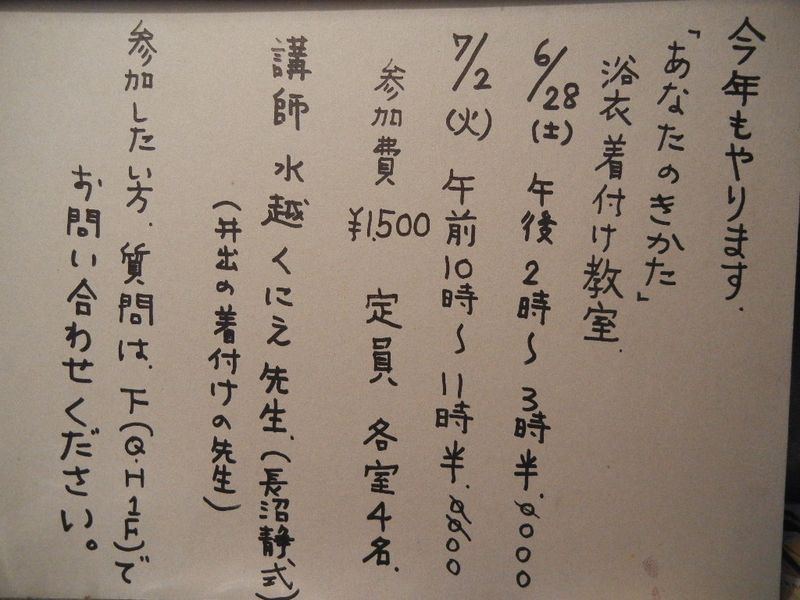 今年もやります.
「あなたのきかた」
浴衣着付け教室.
6/28(土) 午後2時〜3時半.0000
7/2(火) 午前10時〜11時半.0000
参加費 ¥1,500 定員 各室4名.
講師 水越くにえ先生.(長沼静式)
(井出の着付けの先生)
参加したい方.質問は、下(Q.H1F)で
お問い合わせください。